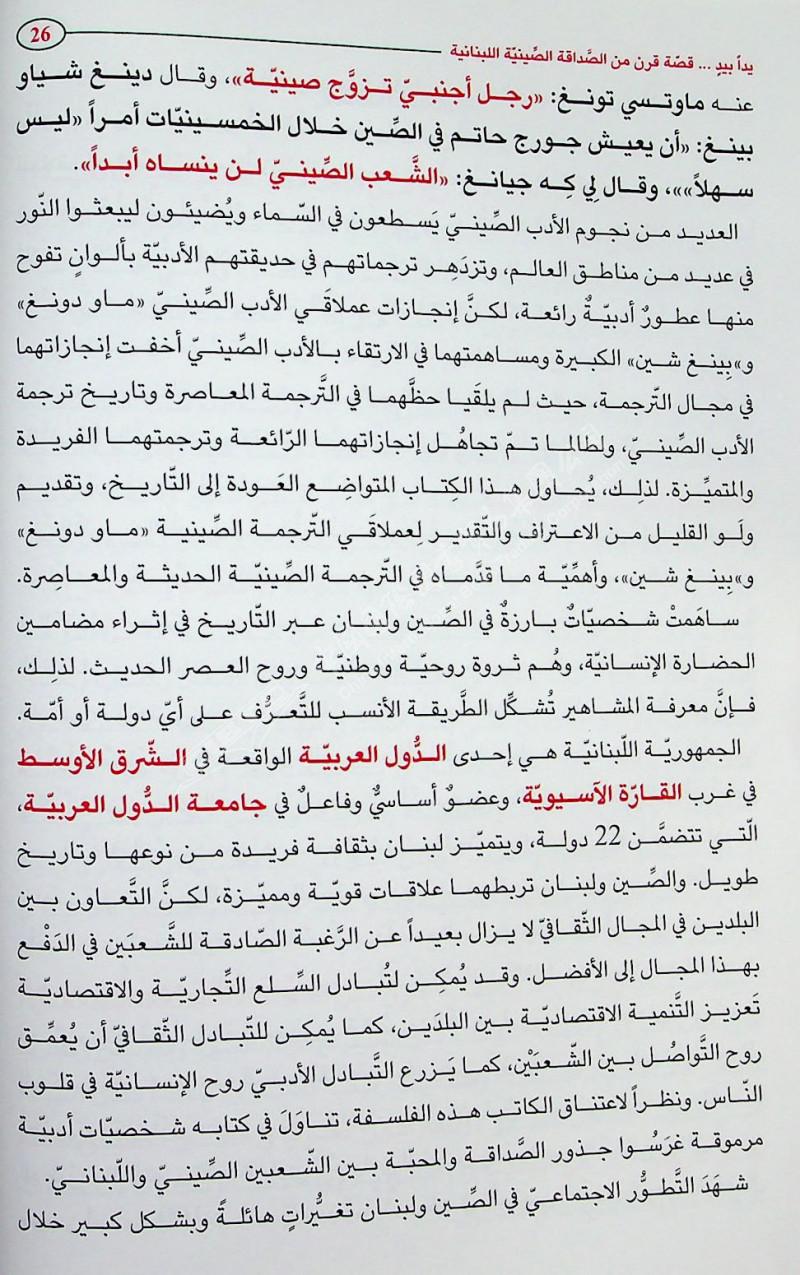 26
يداً بيدٍ ... قصّة قرن من الصَّداقة الصِّينيّة اللبنانية
عنه ماوتسي تونغ: «رجل أجنبيّ تزوَّج صينيّة»، وقال دينغ شياو
بينغ: «أن يعيش جورج حاتم في الصِّين خلال الخمسينيّات أمراً «ليس
سهلاً»»، وقال لِي كِه جيانغ: «الشَّعب الصِّينيّ لن ينساه أبداً».
العديد من نجوم الأدب الصِّينيّ يَسطعون في السّماء ويُضيئون ليبعثوا النّور
في عديد من مناطق العالم، وتزدَهِر ترجماتهم في حديقتهم الأدبيّة بألوانٍ تفوح
منها عطورٌ أدبيّةٌ رائعة، لكنَّ إنجازات عملاقَي الأدب الصِّينيّ «ماو دونغ»
و»بِينغ شين» الكبيرة ومساهمتهما في الارتقاء بالأدب الصِّينيّ أخفت إنجازاتهما
في مجال التّرجمة، حيث لم يلقَيا حظَّهما في التَّرجمة المعاصرة وتاريخ ترجمة
الأدب الصِّينيّ، ولطالما تمّ تجاهُل إنجازاتهما الرّائعة وترجمتهما الفريدة
والمتميِّزة. لذلِك، يُحاول هذا الكِتاب المتواضِع العَودة إلى التّاريخ، وتقديم
ولَو القليل من الاعتراف والتّقدير لِعملاقَي التّرجمة الصِّينية «ماو دونغ»
و»بِينغ شين»، وأهمِّيّة ما قدَّماه في التّرجمة الصِّينيّة الحديثة والمعاصِرة.
ساهَمتْ شخصيّاتٌ بارزةٌ في الصِّين ولبنان عبر التّاريخ في إثراء مضامين
الحضارة الإنسانيّة، وهُم ثروة روحيّة ووطنيّة وروح العصر الحديث. لذلِك،
فإنَّ معرفة المشاهير تُشكِّل الطَّريقة الأنسب للتَّعرُّف على أيّ دولة أو أمّة.
الجمهوريّة اللّبنانيّة هي إحدى الدُّول العربيّة الواقعة في الشّرق الأوسط
في غرب القارّة الآسيويّة، وعضوٌ أساسيٌّ وفاعلٌ في جامعة الدُّول العربيّة،
الّتي تتضمَّن 22 دولة، ويتميّز لبنان بثقافة فريدة من نوعها وتاريخ
طويل. والصِّين ولبنان تربطهما علاقات قويّة ومميّزة، لكنَّ التَّعاون بين
البلدين في المجال الثّقافيّ لا يزال بعيداً عن الرَّغبة الصّادقة للشَّعبَين في الدَفْع
بهذا المجال إلى الأفضل. وقد يُمكِن لتُبادل السِّلع التِّجاريّة والاقتصاديّة
تَعزيز التَّنمية الاقتصاديّة بين البلدَين، كما يُمكِن للتّبادل الثّقافيّ أن يُعمِّق
روح التَّواصُل بين الشّعبَيْن، كما يَزرع التَّبادل الأدبيّ روح الإنسانيّة في قلوب
النّاس. ونظراً لاعتناق الكاتب هذه الفلسفة، تناوَلَ في كتابه شخصيّات أدبيّة
مرموقة غرَسُوا جذور الصَّداقة والمحبّة بين الشّعبين الصِّينيّ واللّبنانيّ.
شهَدَ التَّطوُّر الاجتماعيّ في الصِّين ولبنان تغيُّراتٍ هائلةً وبشكل كبير خلال